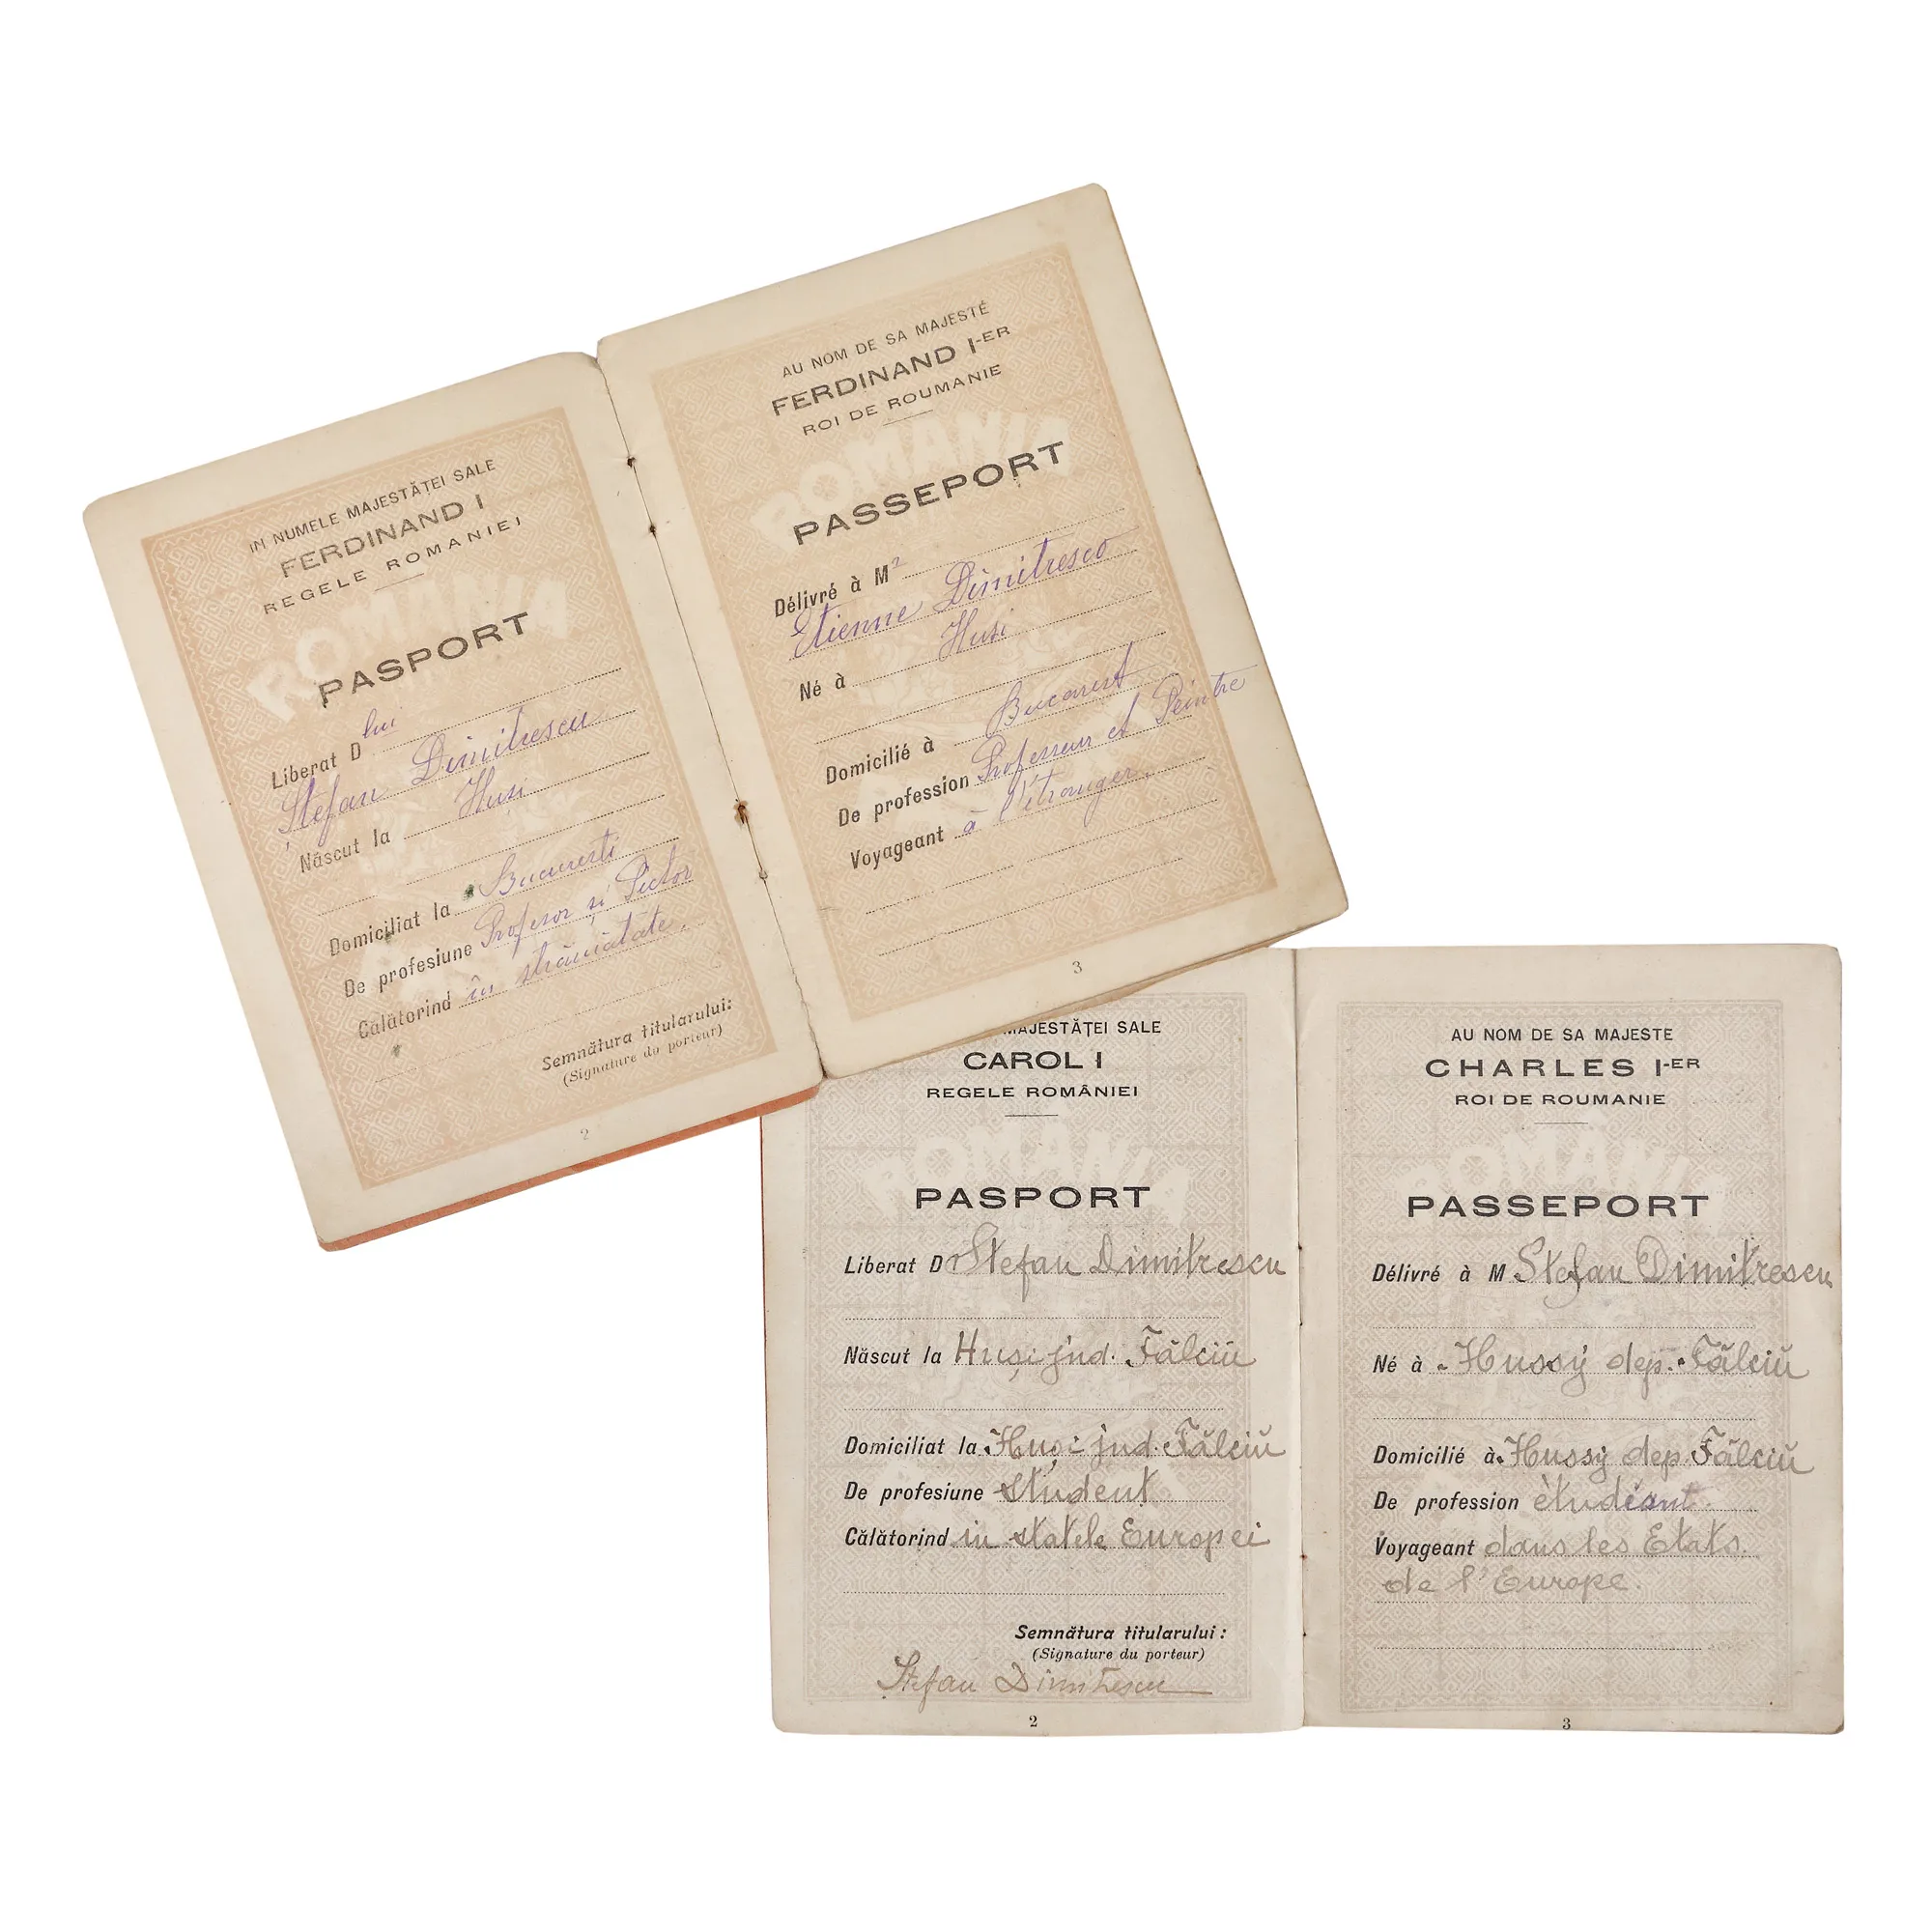 IN NUMELE MAJESTĂȚEI SALE
FERDINAND I
REGELE ROMANIEI
ROMANIA
PASPORT
Liberat D lui
Ștefan Dimitrescu
Născut la Huși
Domiciliat la București
De profesiune Profesor și Pictor
Călătorind în străinătate.
Semnătura titularului:
(Signature du porteur)
2
AU NOM DE SA MAJESTÉ
FERDINAND I-ER
ROI DE ROUMANIE
ROMANIA
PASSEPORT
Délivré à Mr
Etienne Dimitresco
Né à Husi
Domicilié à Bucarest
De profession Professeur et Peintre
Voyageant à l'étranger.
3
MAJESTĂȚEI SALE
CAROL I
REGELE ROMÂNIEI
ROMÂNIA
PASPORT
Liberat Dr Stefan Dimitrescu
Născut la Huși jud. Fălciŭ
Domiciliat la Huși jud. Fălciŭ
De profesiune student
Călătorind in statele Europei
Semnătura titularului:
(Signature du porteur)
Ștefan Dimitrescu
2
AU NOM DE SA MAJESTE
CHARLES I-ER
ROI DE ROUMANIE
ROMÂNIA
PASSEPORT
Délivré à M Stefan Dimitrescu
Né à Hussy dep. Fălciŭ
Domicilié à Hussy dep. Fălciŭ
De profession ètudiant.
Voyageant dans les Etats
de l'Europe.
3